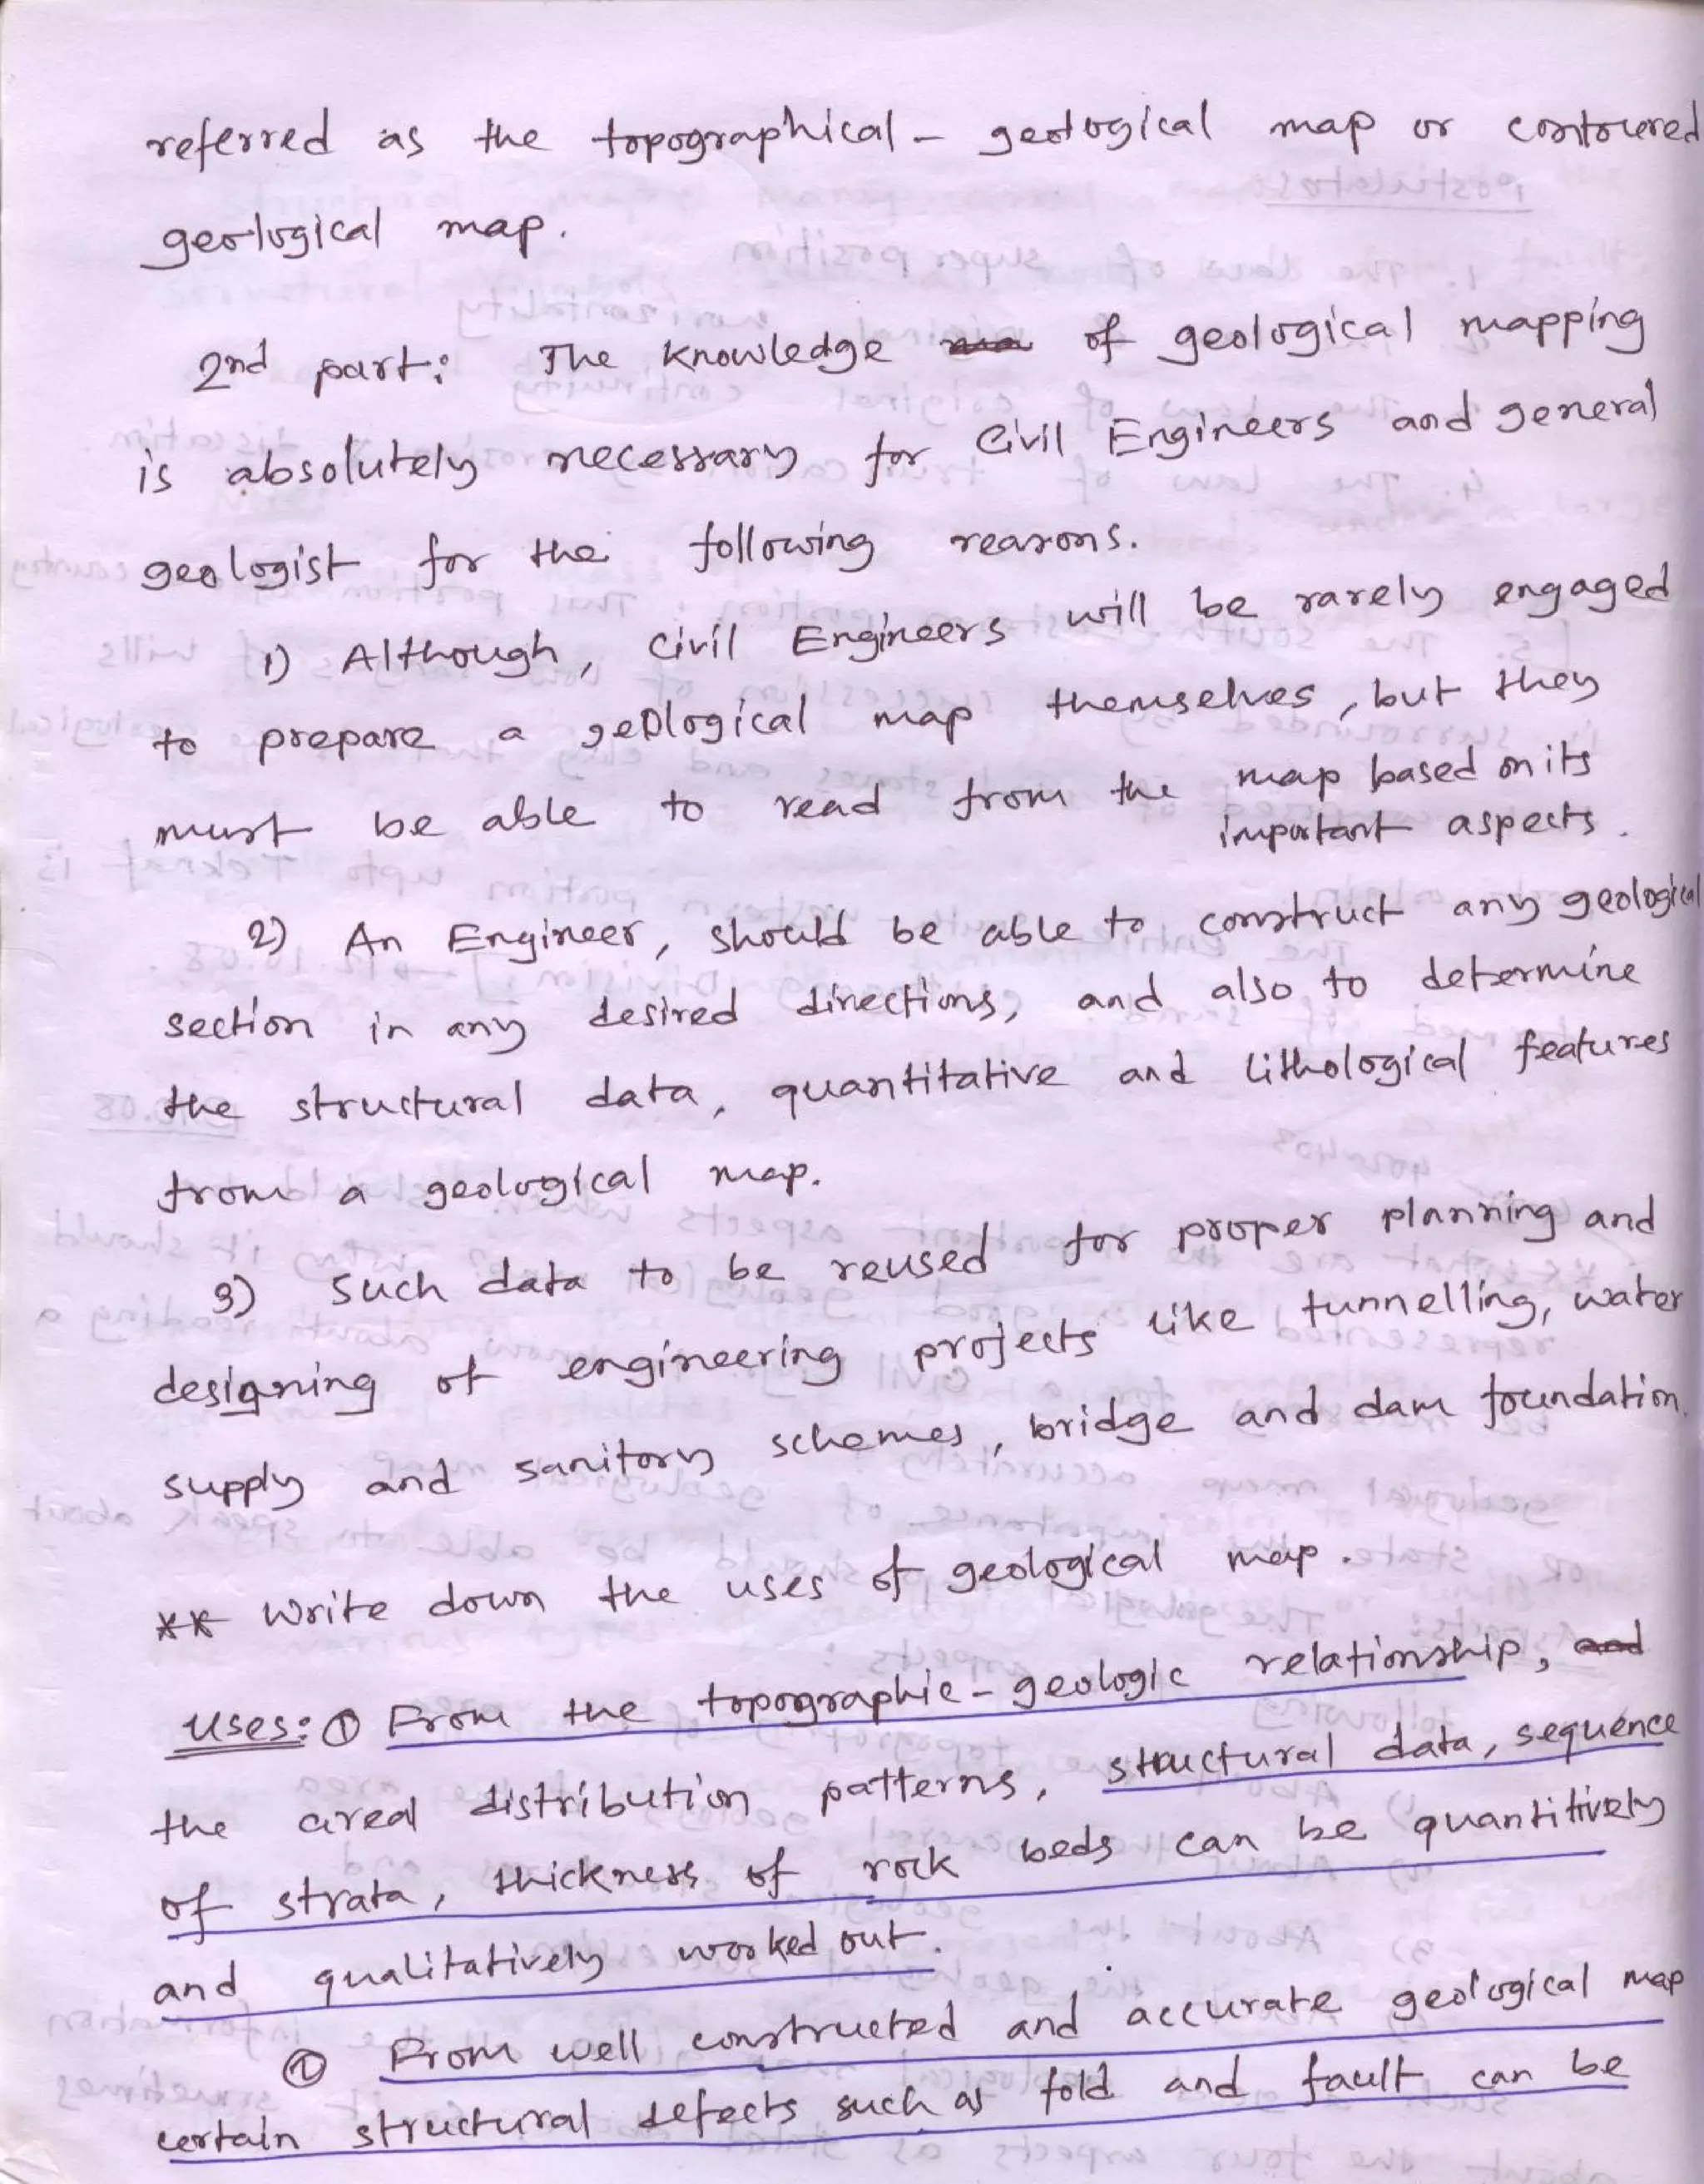 referred as the topographical - geological map or contoured
geological map.
2nd part: The knowledge of geological mapping
is absolutely necessary for Civil Engineers and general
geologist for the following reasons.
1) Although, Civil Engineers will be rarely engaged
to prepare a geological map themselves, but they
must be able to read from the map based on its
important aspects.
2) An Engineer, should be able to construct any geological
section in any desired directions, and also to determine
the structural data, quantitative and lithological features
from a geological map.
3) Such data to be reused for proper planning and
designing of engineering projects like tunnelling, water
supply and sanitory schemes, bridge and dam foundation.
** Write down the uses of geological map.
Uses: ① From the topographic - geologic relationship, and
the areal distribution patterns, structural data, sequence
of strata, thickness of rock beds can be quantitively
and qualitatively worked out.
② From well constructed and accurate geological map
certain structural defects such as fold and fault can be